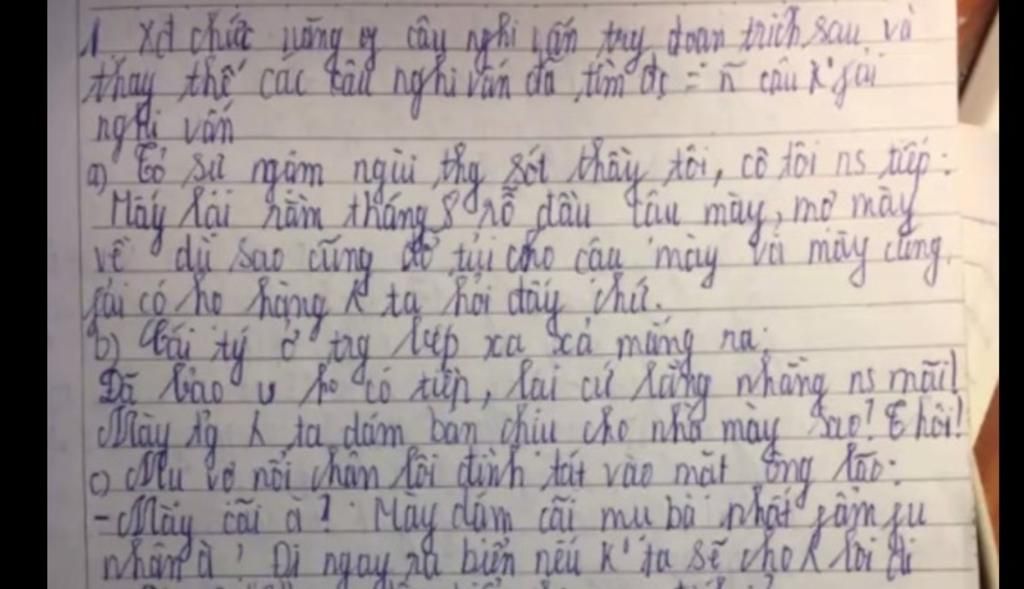 1 Xđ chức năng câu nghi vấn trg đoạn trích sau và
thay thế các câu nghi vấn đã tìm đc = câu k' fải
nghi vấn
a) Tỏ sự ngậm ngùi thg sót thầy tôi, cô tôi ns tiếp:
Mấy lại rằm tháng 8 rỗ đầu cậu mày, mợ mày
về dù sao cũng đỡ tủi cho cậu mày và mày cũng
fải có họ hàng ta hỏi đấy chứ.
b) Cái tý ở trg bếp xa xả mắng ra:
Đã bảo u ko có tiền, lại cứ lằng nhằng ns mãi!
Mày tg ta dám bán chịu cho nhà mày sao? hôi!
c) Mụ vợ nổi chân lôi đình tát vào mặt ông lão:
- Mày cãi à? Mày dám cãi mụ bà nhất fẩm fu
nhân à? Đi ngay ra biển nếu k' ta sẽ cho lôi đi